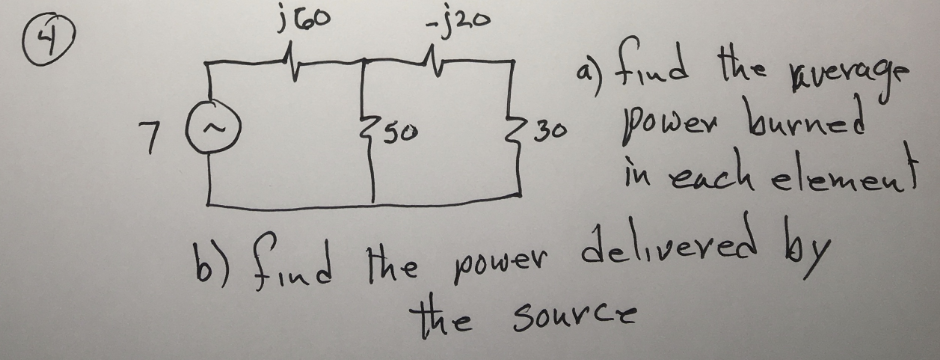 4
j60 -j20
7 ~ 50 30
a) find the average
power burned
in each element
b) find the power delivered by
the source